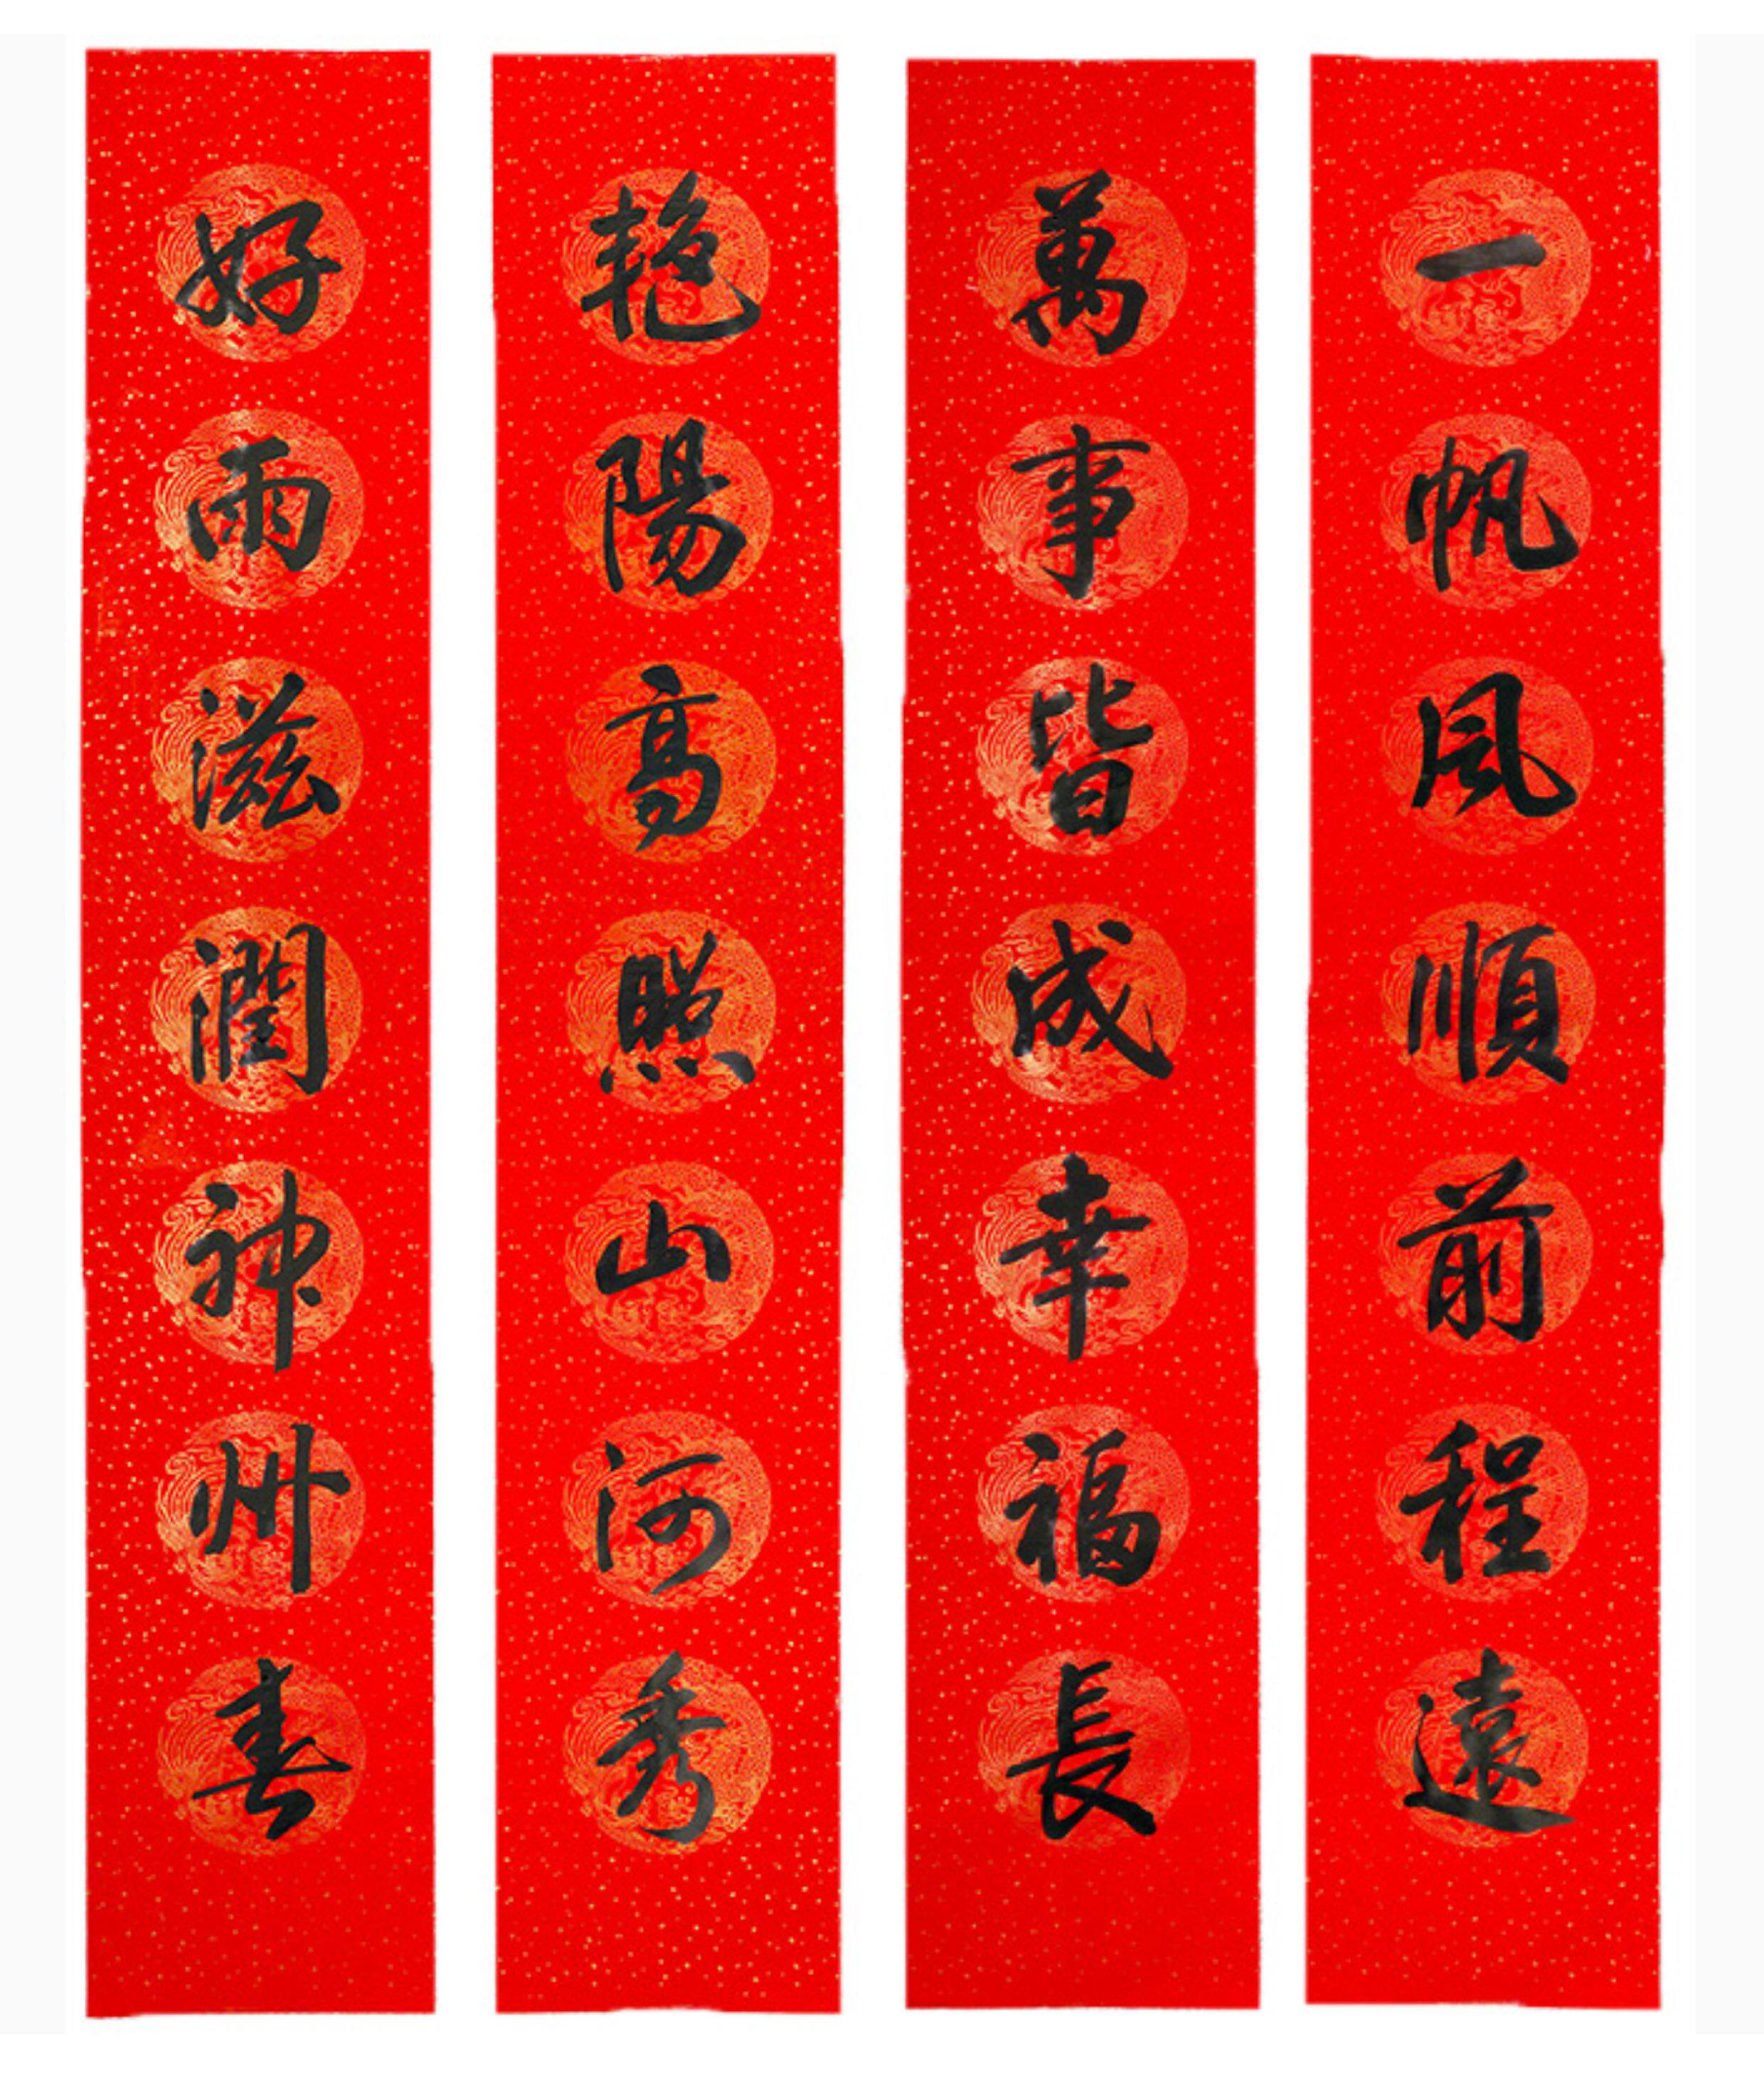 一帆风順前程遠
萬事皆成幸福長
艳陽高照山河秀
好雨滋潤神州春